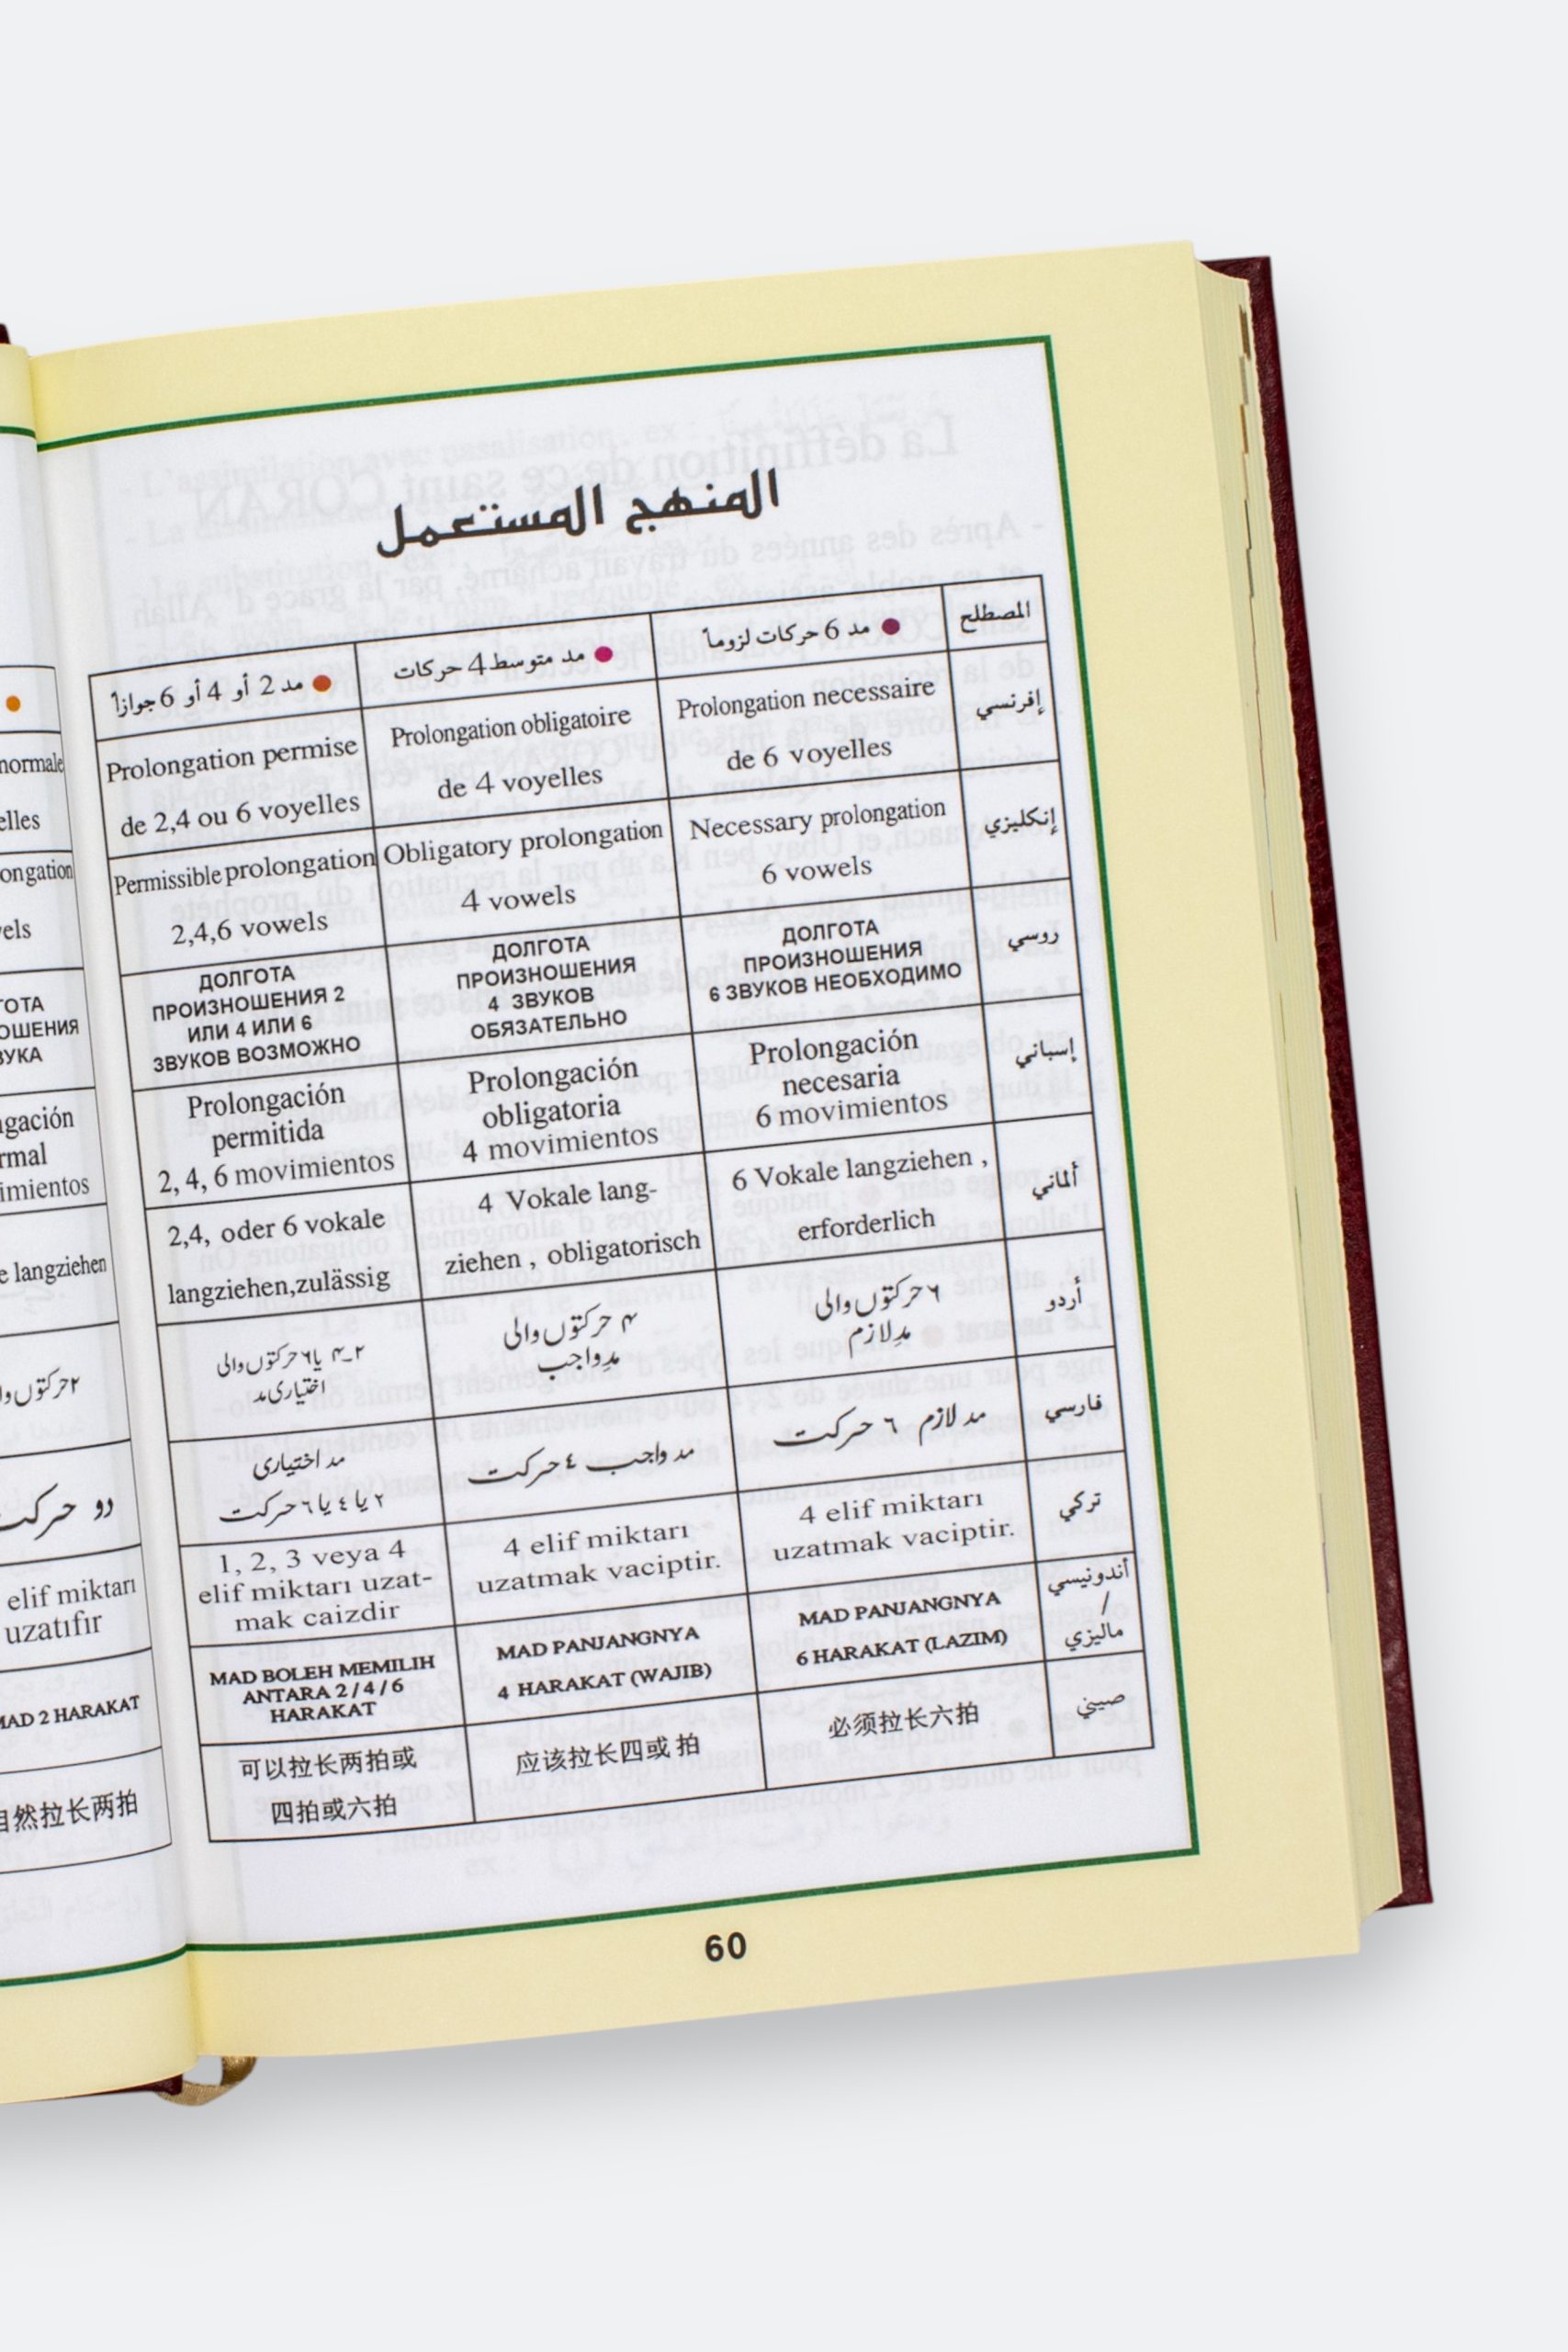 المنهج المستعمل
المصطلح
مد 6 حركات لزوماً
مد متوسط 4 حركات
مد 2 أو 4 أو 6 جوازاً
إفرنسي
Prolongation necessaire
de 6 voyelles
Prolongation obligatoire
de 4 voyelles
Prolongation permise
de 2,4 ou 6 voyelles
normale
elles
إنكليزي
Necessary prolongation
6 vowels
Obligatory prolongation
4 vowels
Permissible prolongation
2,4,6 vowels
ongation
els
روسي
ДОЛГОТА
ПРОИЗНОШЕНИЯ
6 ЗВУКОВ НЕОБХОДИМО
ДОЛГОТА
ПРОИЗНОШЕНИЯ
4 ЗВУКОВ
ОБЯЗАТЕЛЬНО
ДОЛГОТА
ПРОИЗНОШЕНИЯ 2
ИЛИ 4 ИЛИ 6
ЗВУКОВ ВОЗМОЖНО
ГОТА
ОШЕНИЯ
ВУКА
إسباني
Prolongación
necesaria
6 movimientos
Prolongación
obligatoria
4 movimientos
Prolongación
permitida
2, 4, 6 movimientos
gación
rmal
imientos
ألماني
6 Vokale langziehen ,
erforderlich
4 Vokale lang-
ziehen , obligatorisch
2,4, oder 6 vokale
langziehen,zulässig
e langziehen
أردو
٦ حرکتوں والی
مدِلازم
۴ حرکتوں والی
مدِواجب
۲-۴ یا ٦ حرکتوں والی
اختیاری مد
۲حرکتوں وا
فارسي
مد لازم ٦ حرکت
مد واجب ٤ حرکت
مد اختیاری
٢ یا ٤ یا ٦ حرکت
دو حرکت
تركي
4 elif miktarı
uzatmak vaciptir.
4 elif miktarı
uzatmak vaciptir.
1, 2, 3 veya 4
elif miktarı uzat-
mak caizdir
elif miktarı
uzatıfır
أندونيسي
/
ماليزي
MAD PANJANGNYA
6 HARAKAT (LAZIM)
MAD PANJANGNYA
4 HARAKAT (WAJIB)
MAD BOLEH MEMILIH
ANTARA 2 / 4 / 6
HARAKAT
MAD 2 HARAKAT
صيني
必须拉长六拍
应该拉长四或 拍
可以拉长两拍或
四拍或六拍
自然拉长两拍
60